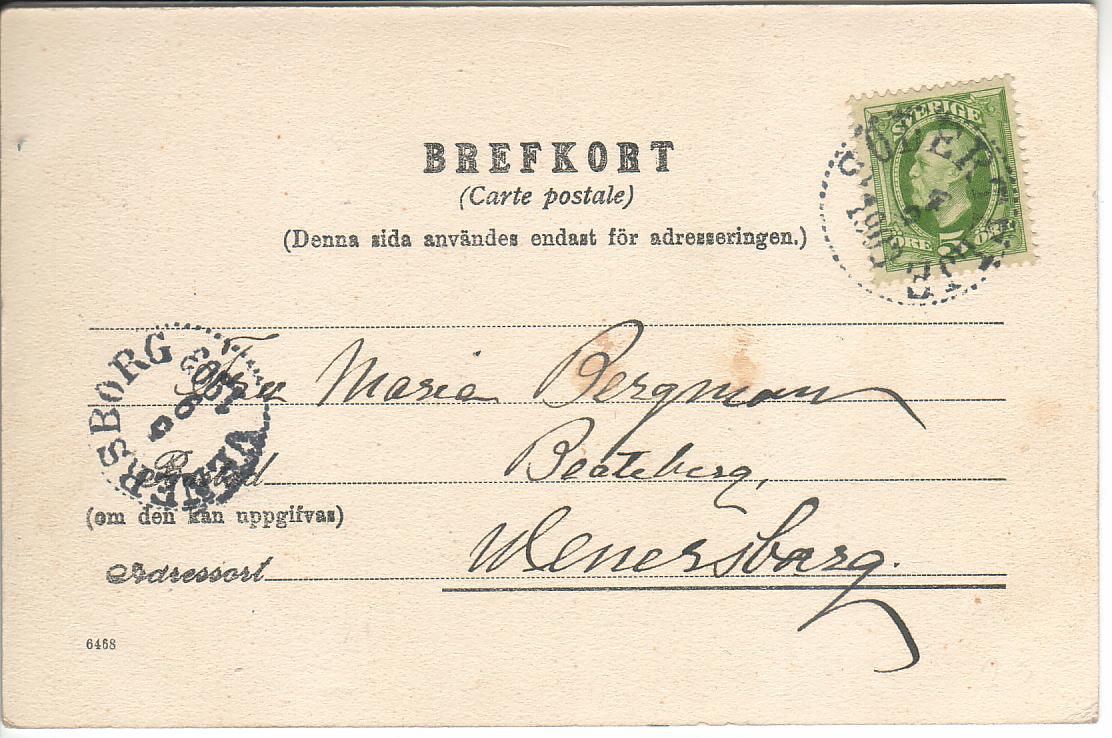 BREFKORT
(Carte postale)
(Denna sida användes endast för adresseringen.)
SVERIGE
ÖRE 5 ÖRE
Fru Maria Bergman
Beateberg,
Wenersborg.
Bostad
(om den kan uppgifvas)
Adressort
6468
VENERSBORG
1903